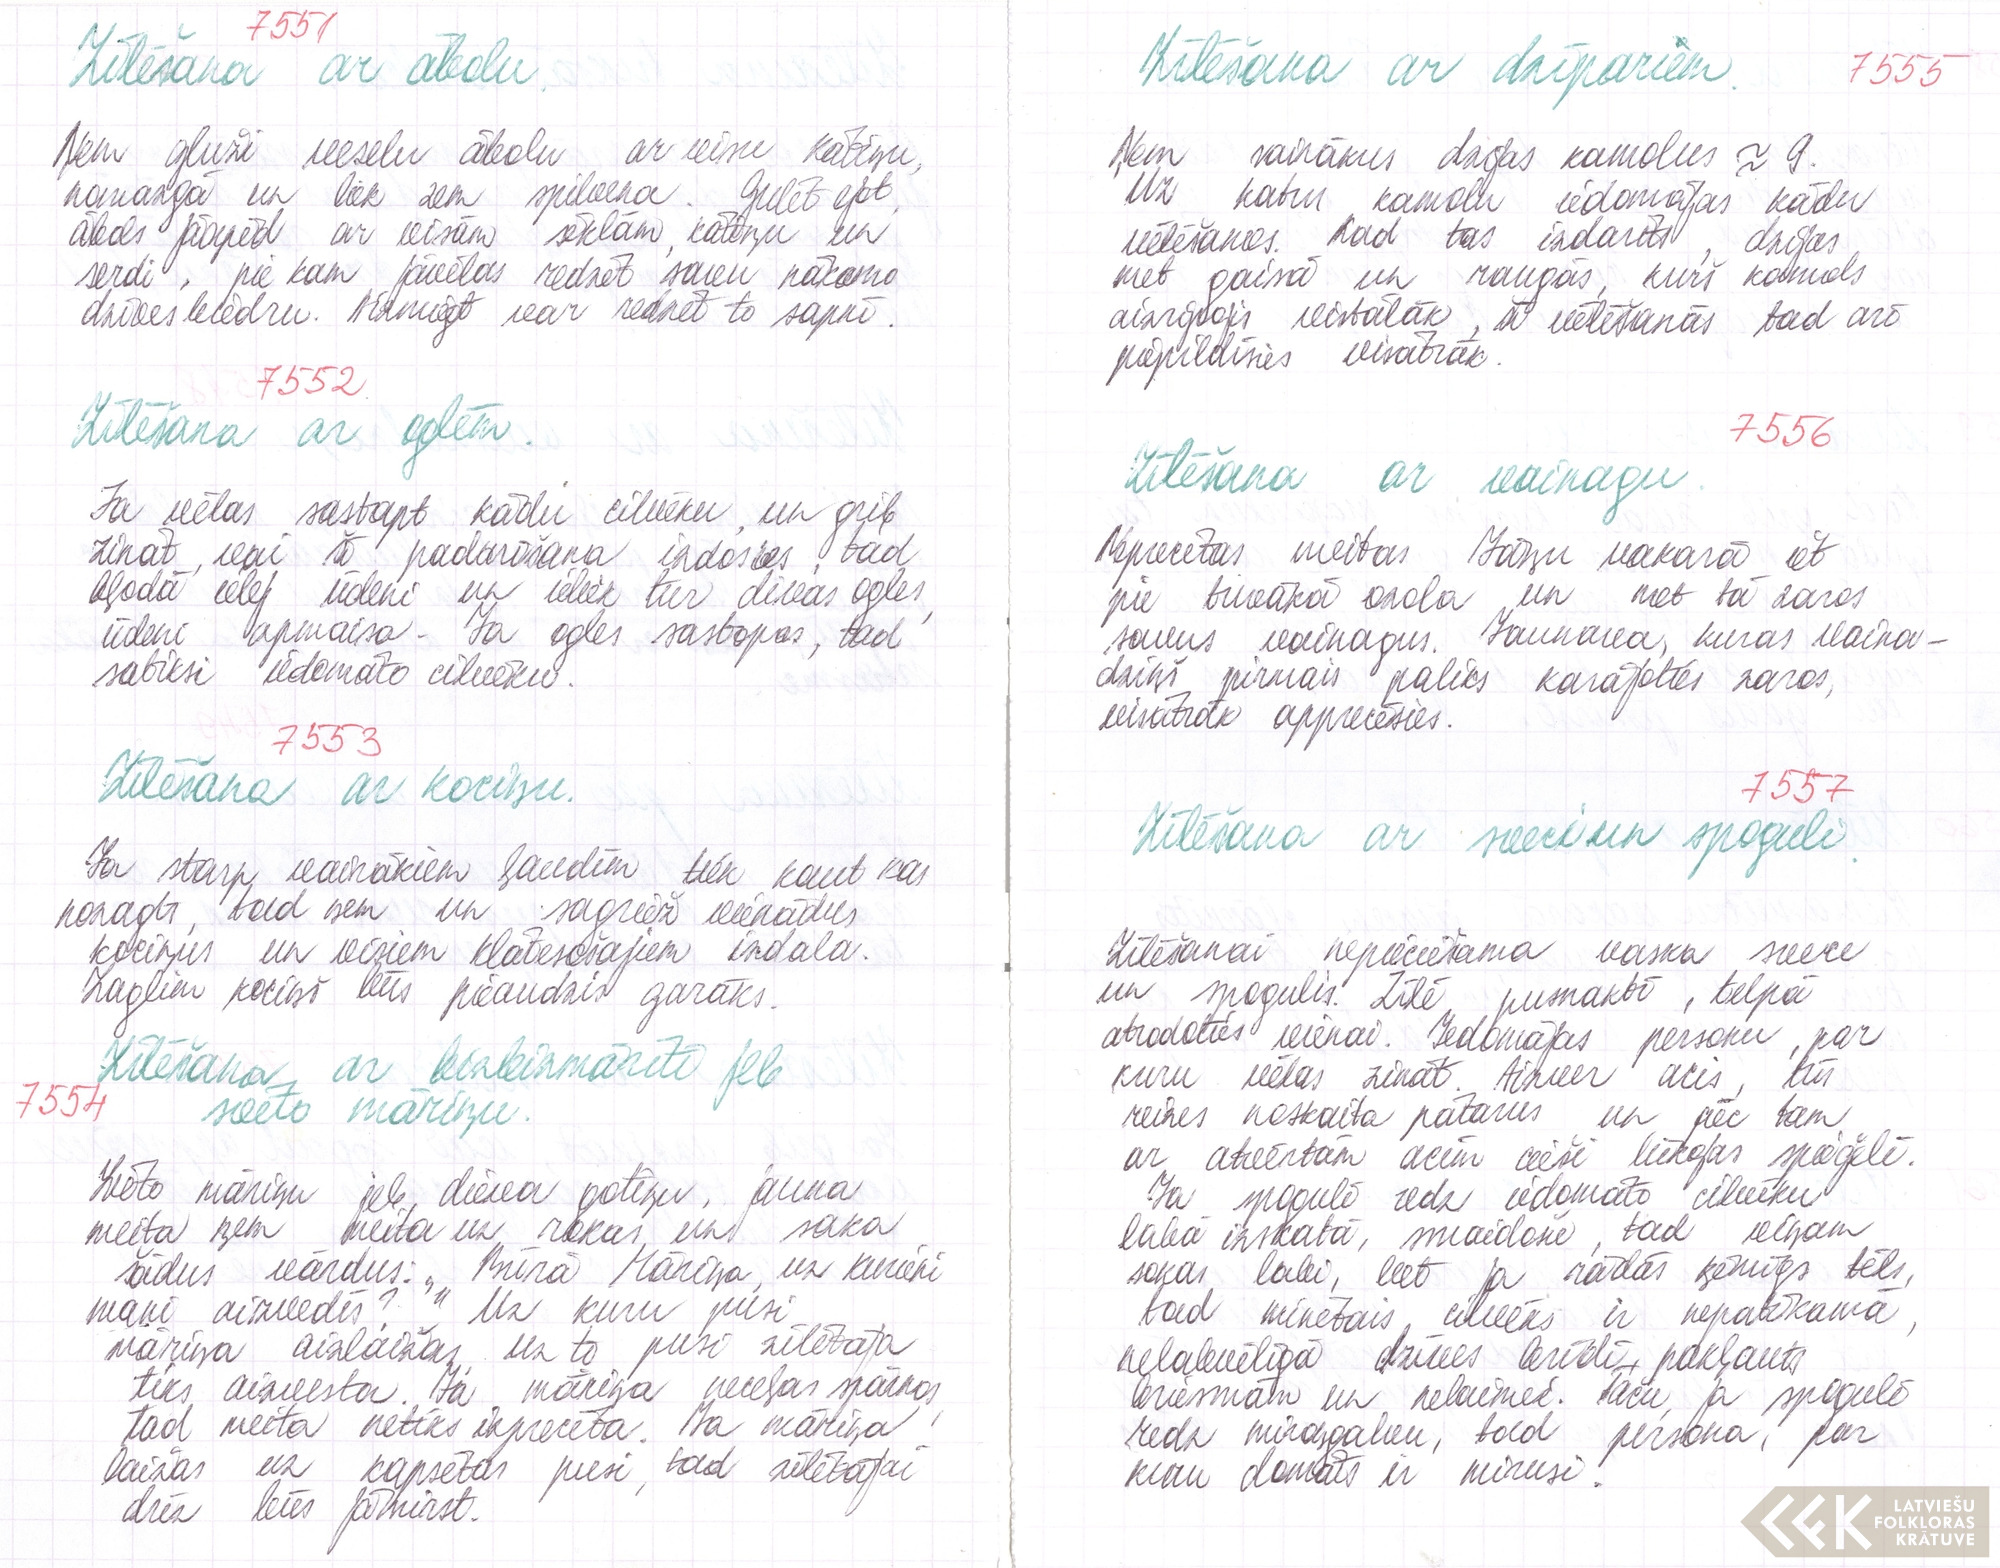 7551
Zīlēšana ar ābolu.
Ņem gluži veselu ābolu ar visu kātiņu,
nomazgā un liek zem spilvena. Gulēt ejot,
ābols jāapēd ar visām sēklām, kātiņu un
serdi, pie kam jāvēlas redzēt savu nākamo
dzīves biedru. Aizmiegt var redzēt to sapnī.
7552
Zīlēšana ar oglēm.
Ja vēlas sastapt kādu cilvēku, un grib
zināt, vai šī padarīšana izdosies, tad
bļodā ielej ūdeni un ieliek tur divas ogles,
ūdeni apmaisa. Ja ogles sastopas, tad
satiksi iedomāto cilvēku.
7553
Zīlēšana ar kociņu.
Ja starp vairākiem ļaudīm tiek kaut kas
nozagts, tad ņem un sagriež vienādus
kociņus un visiem klātesošajiem izdala.
Zaglim kociņš būs pieaudzis garāks.
Zīlēšana ar bizbizmārīti jeb
7554 svēto māriņu.
Svēto māriņu jeb dieva gotiņu, jauna
meita ņem meita uz rokas un saka
šādus vārdus: „Bizā Māriņa, uz kurieni
mani aizvedīs?" Uz kuru pusi
māriņa aizlaižas, uz to pusi zīlētāja
tiks aizvesta. Ja māriņa neceļas spārnos,
tad meita netiks izprecēta. Ja māriņa
laižas uz kapsētas pusi, tad zīlētājai
drīz būs jāmirst.
Zīlēšana ar dzīpariem. 7555
Ņem vairākus dzijas kamolus ≈ 9.
Uz katru kamolu iedomājas kādu
vēlēšanos. Kad tas izdarīts, dzijas
met gaisā un raugās, kurš kamols
aizripojis vistālāk, šī vēlēšanās tad arī
piepildīsies visātrāk.
7556
Zīlēšana ar vainagu.
Neprecētas meitas Jāņu vakarā iet
pie tuvākā ozola un met tā zaros
savus vainagus. Jaunava, kuras vaina-
dziņš pirmais paliks karājoties zaros,
visātrāk apprecēsies.
7557
Zīlēšana ar sveci un spoguli.
Zīlēšanai nepieciešama vaska svece
un spogulis. Zīlē pusnaktī, telpā
atrodoties vienai. Iedomājas personu, par
kuru vēlas zināt. Aizver acis, trīs
reizes noskaita pātarus un pēc tam
ar atvērtām acīm cieši lūkojas spogulī.
Ja spogulī redz iedomāto cilvēku
labā izskatā, smaidošu, tad viņam
sokas labi, bet ja rādās ķēmīgs tēls,
tad minētais cilvēks ir nepatīkamā,
nelabvēlīgā dzīves brīdī, pakļauts
briesmām un nelaimei. Taču, ja spogulī
redz miroņgalvu, tad persona, par
kuru domāts ir mirusi.
LATVIEŠU
FOLKLORAS
KRĀTUVE